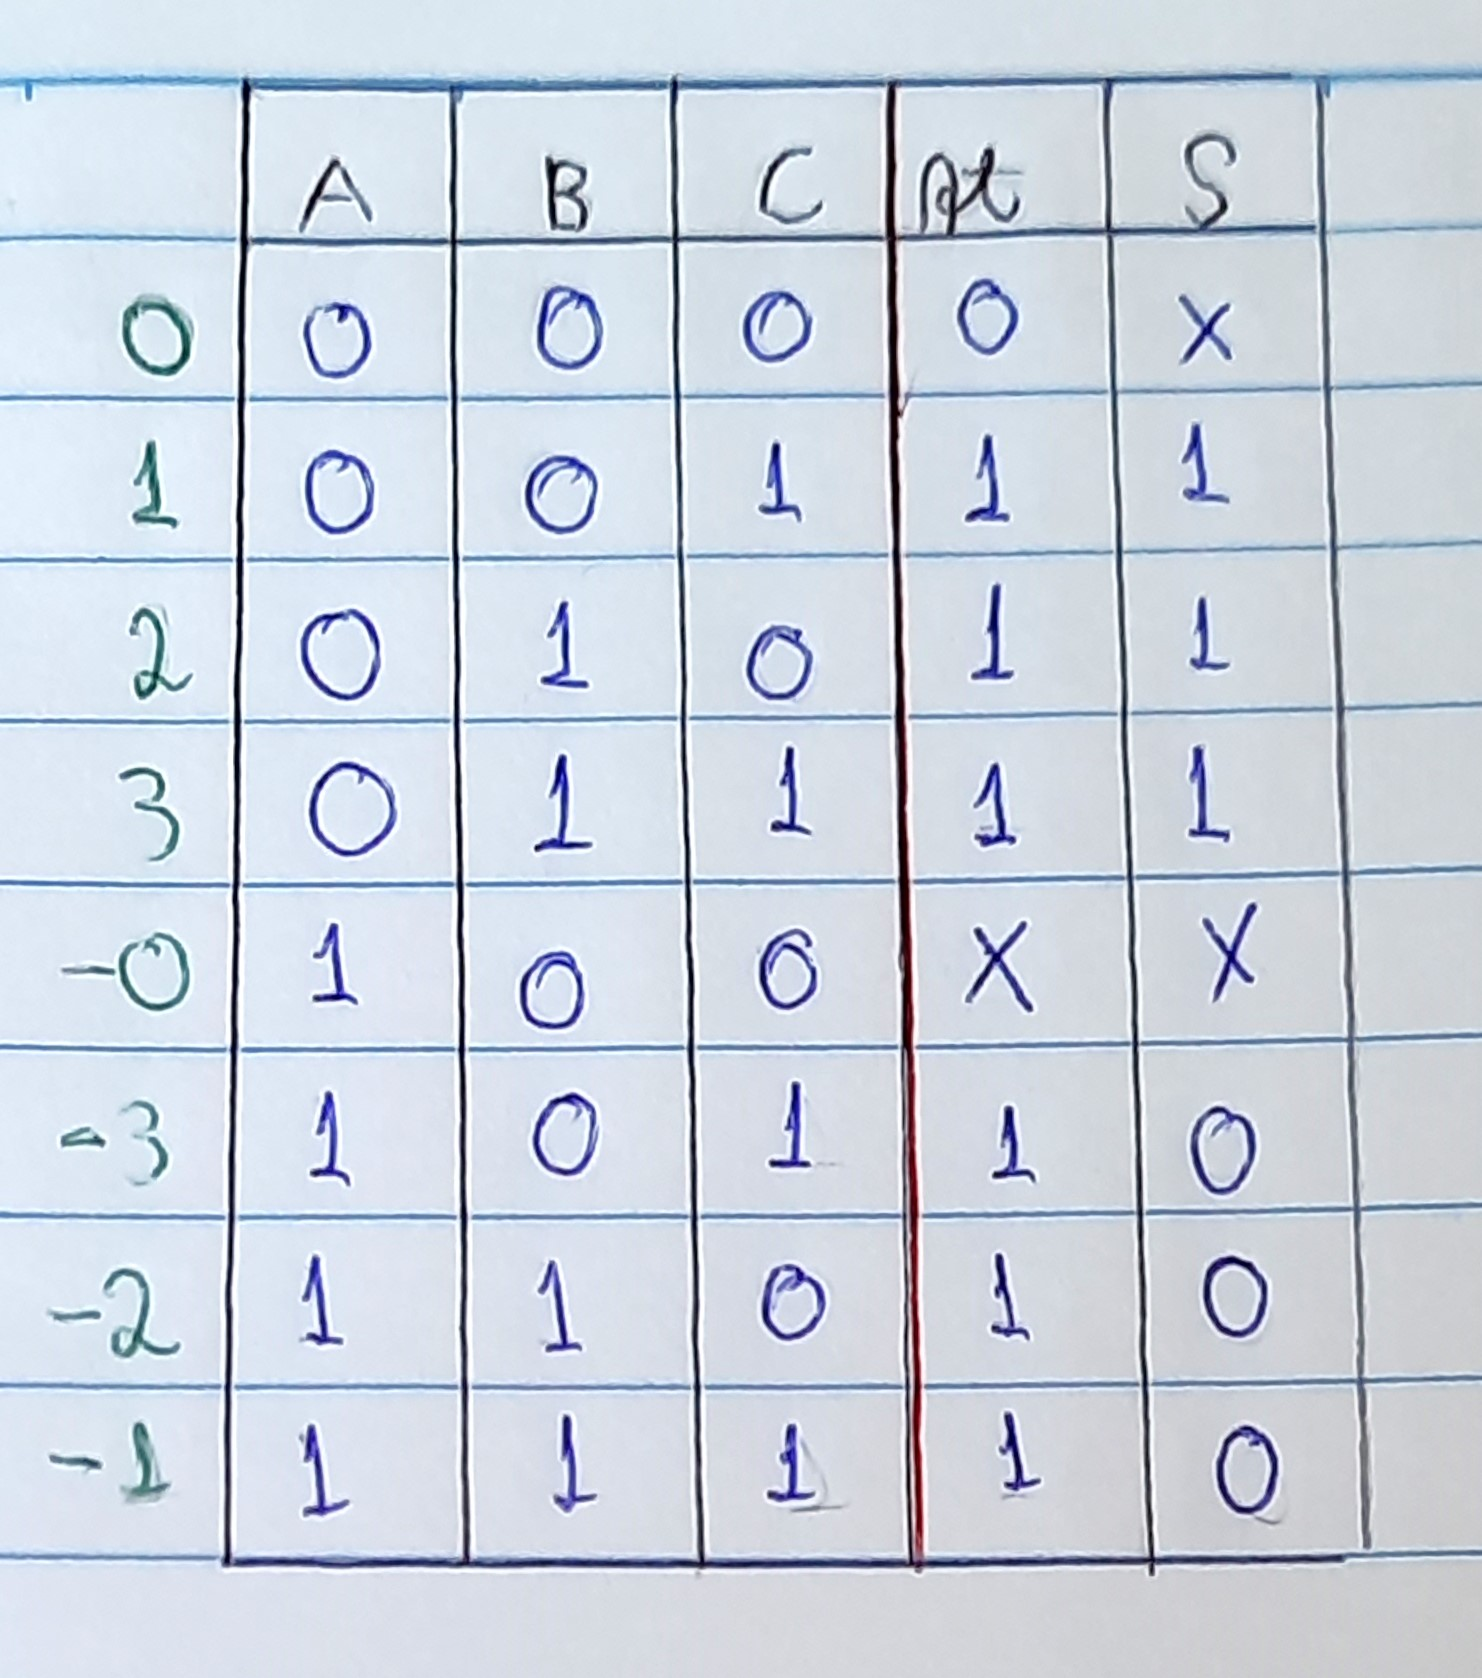 A B C At S
0 0 0 0 0 X
1 0 0 1 1 1
2 0 1 0 1 1
3 0 1 1 1 1
-0 1 0 0 X X
-3 1 0 1 1 0
-2 1 1 0 1 0
-1 1 1 1 1 0